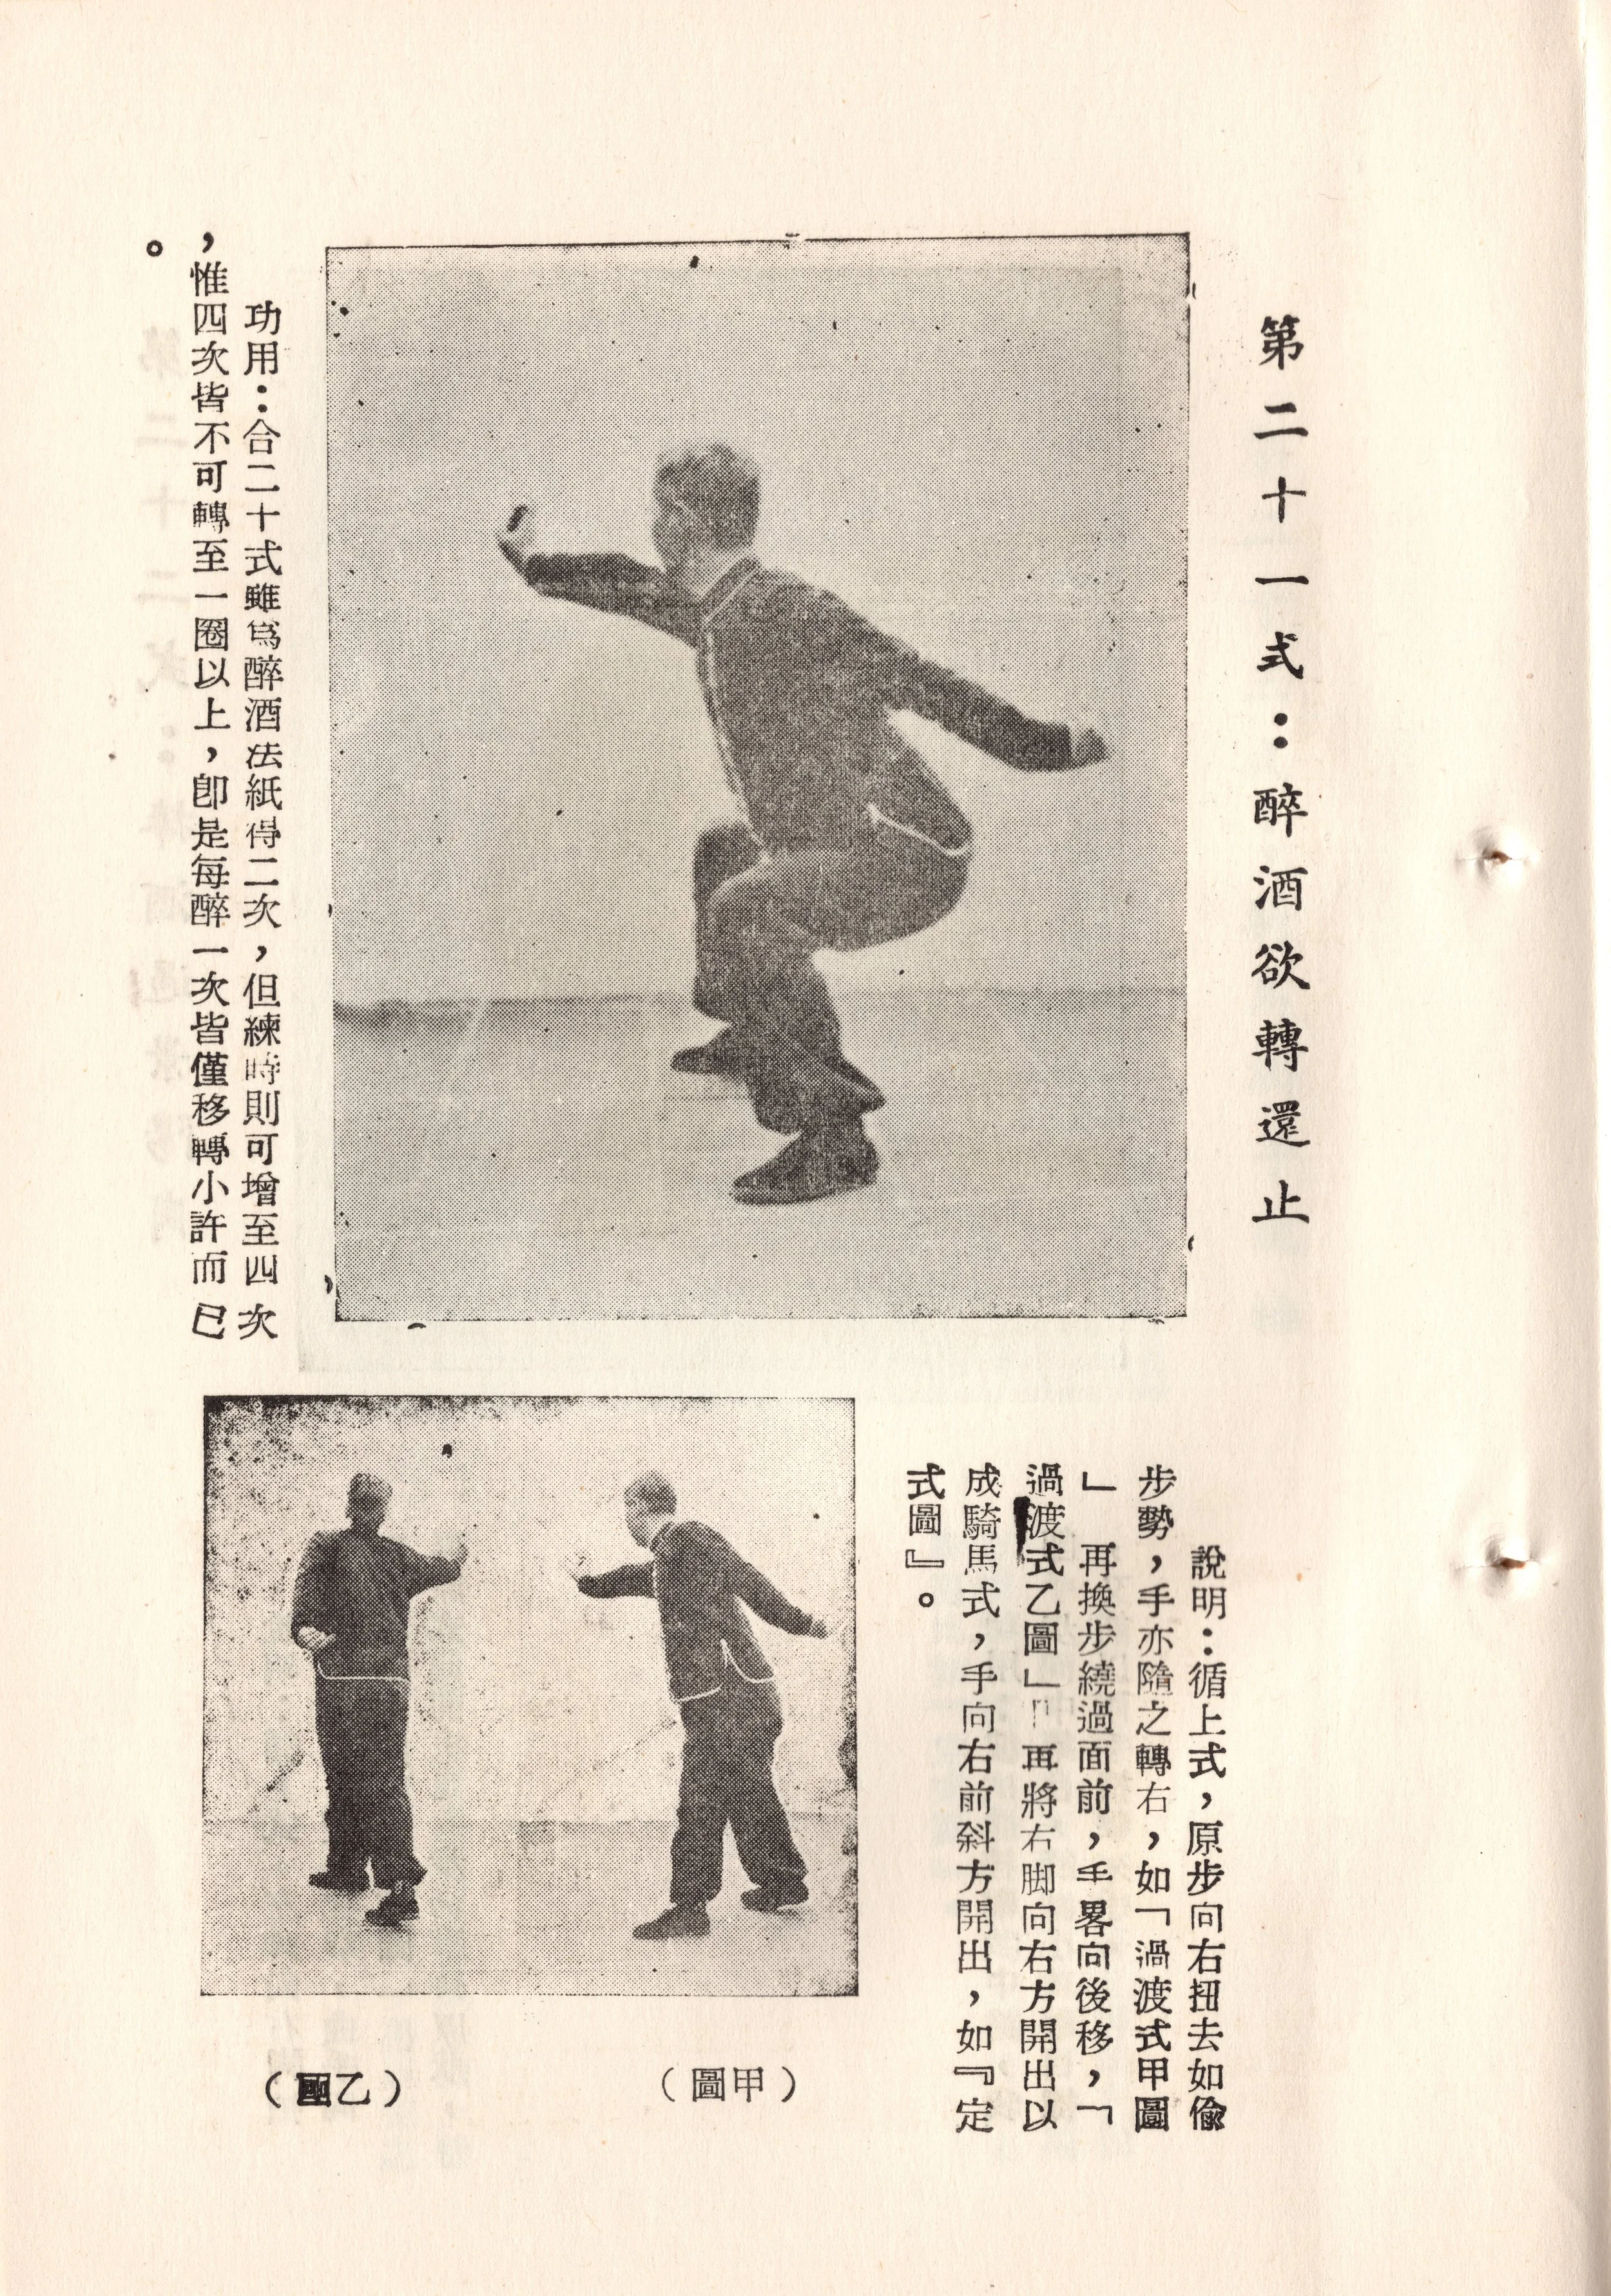 第二十一式：醉酒欲轉還止
說明：循上式，原步向右扭去如偸
步勢，手亦隨之轉右，如「過渡式甲圖
」再換步繞過面前，手畧向後移，「
過渡式乙圖」再將右脚向右方開出以
成騎馬式，手向右前斜方開出，如『定
式圖』。
功用：合二十式雖爲醉酒法紙得二次，但練時則可增至四次
，惟四次皆不可轉至一圈以上，卽是每醉一次皆僅移轉小許而已
。
（甲圖）
（乙圖）